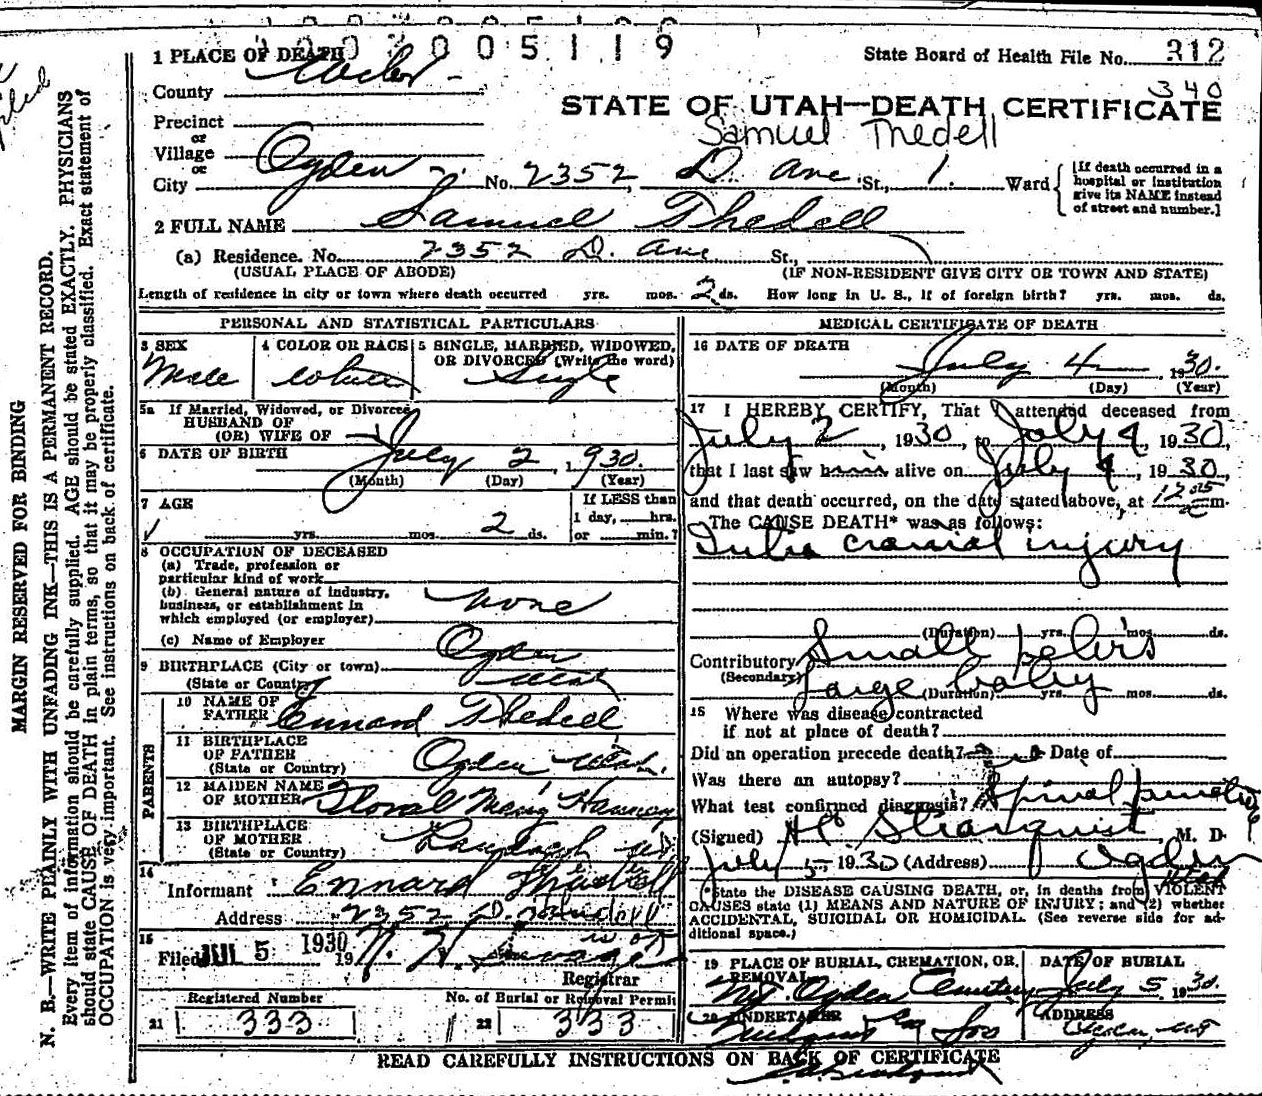 1 0 0 2 0 0 5 1 1 9
1 PLACE OF DEATH
State Board of Health File No. 312
340
County Weber
STATE OF UTAH—DEATH CERTIFICATE
Samuel Thedell
Precinct
or
Village
or
City Ogden No. 2352 D. Ave St., 1. Ward
[If death occurred in a hospital or institution give its NAME instead of street and number.]
2 FULL NAME Samuel Thedell
(a) Residence. No. 2352 D. Ave St.,
(USUAL PLACE OF ABODE) (IF NON-RESIDENT GIVE CITY OR TOWN AND STATE)
Length of residence in city or town where death occurred yrs. mos. 2 ds. How long in U. S., if of foreign birth? yrs. mos. ds.
PERSONAL AND STATISTICAL PARTICULARS
3 SEX
Male
4 COLOR OR RACE
White
5 SINGLE, MARRIED, WIDOWED, OR DIVORCED (Write the word)
Single
5a If Married, Widowed, or Divorced
HUSBAND OF
(OR) WIFE OF
6 DATE OF BIRTH July 2, 1930.
(Month) (Day) (Year)
7 AGE
yrs. mos. 2 ds.
If LESS than
1 day, hrs.
or min.?
8 OCCUPATION OF DECEASED
(a) Trade, profession or
particular kind of work
(b) General nature of industry,
business, or establishment in
which employed (or employer) None
(c) Name of Employer
9 BIRTHPLACE (City or town) Ogden
(State or Country) Utah
PARENTS
10 NAME OF
FATHER Ennard Thedell
11 BIRTHPLACE
OF FATHER
(State or Country) Ogden Utah.
12 MAIDEN NAME
OF MOTHER
13 BIRTHPLACE
OF MOTHER
(State or Country) Randolph
14
Informant Ennard Thedell
Address 2352 D.
15
Filed JUL 5 1930
Registrar
Registered Number
21 333
No. of Burial or Removal Permit
22 333
MEDICAL CERTIFICATE OF DEATH
16 DATE OF DEATH
July 4 1930.
(Month) (Day) (Year)
17 I HEREBY CERTIFY, That I attended deceased from
July 2, 1930, to July 4, 1930,
that I last saw him alive on July 4, 1930,
and that death occurred, on the date stated above, at m.
The CAUSE DEATH* was as follows:
Intra cranial injury
(Duration) yrs. mos. ds.
Contributory Small pelvis
(Secondary) Large baby
(Duration) yrs. mos. ds.
18 Where was disease contracted
if not at place of death?
Did an operation precede death? Date of
Was there an autopsy?
What test confirmed diagnosis? Spinal puncture
(Signed) M. D.
July 5 1930 (Address) Ogden Utah
*State the DISEASE CAUSING DEATH, or, in deaths from VIOLENT
CAUSES state (1) MEANS AND NATURE OF INJURY; and (2) whether
ACCIDENTAL, SUICIDAL OR HOMICIDAL. (See reverse side for additional space.)
19 PLACE OF BURIAL, CREMATION, OR REMOVAL
Ogden Cemetery
DATE OF BURIAL
July 5, 1930.
20 UNDERTAKER
Sons
ADDRESS
Ogden, Ut
READ CAREFULLY INSTRUCTIONS ON BACK OF CERTIFICATE
MARGIN RESERVED FOR BINDING
N. B.—WRITE PLAINLY WITH UNFADING INK—THIS IS A PERMANENT RECORD.
Every item of information should be carefully supplied. AGE should be stated EXACTLY. PHYSICIANS
should state CAUSE OF DEATH in plain terms, so that it may be properly classified. Exact statement of
OCCUPATION is very important. See instructions on back of certificate.